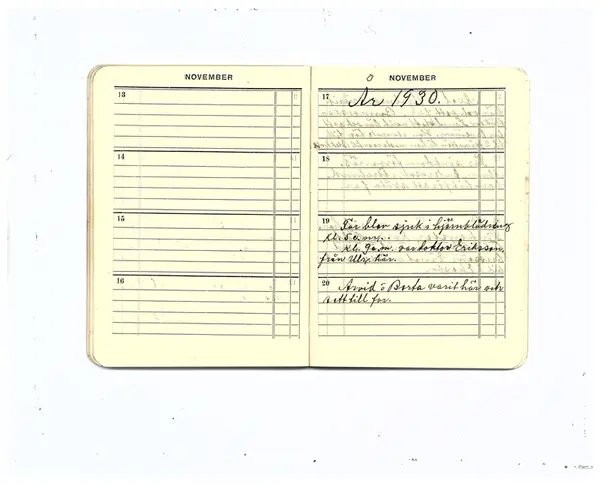 NOVEMBER
13
14
15
16
NOVEMBER
17
År 1930.
18
19
Far blev sjuk i hjärnblödning
kl. 5 e.m.
kl. 9 e.m. var doktor Eriksson
från Ulr. här.
20
Arvid o Berta varit här och
sett till far.